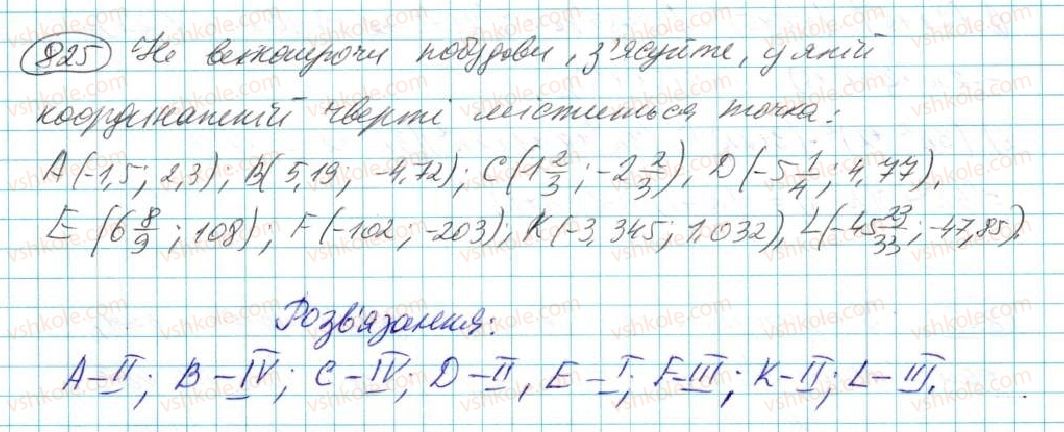 825 Не виконуючи побудови, з'ясуйте, у якій
координатній чверті міститься точка:
A(-1,5; 2,3); B(5,19; -4,72); C(1 2/3; -2 2/3), D(-5 1/4; 4,77),
E(6 8/9; 108); F(-102; -203), K(-3,345; 1,032), L(-45 23/33; -47,85).
Розв'язання:
A-II; B-IV; C-IV; D-II, E-I; F-III; K-II; L-III.